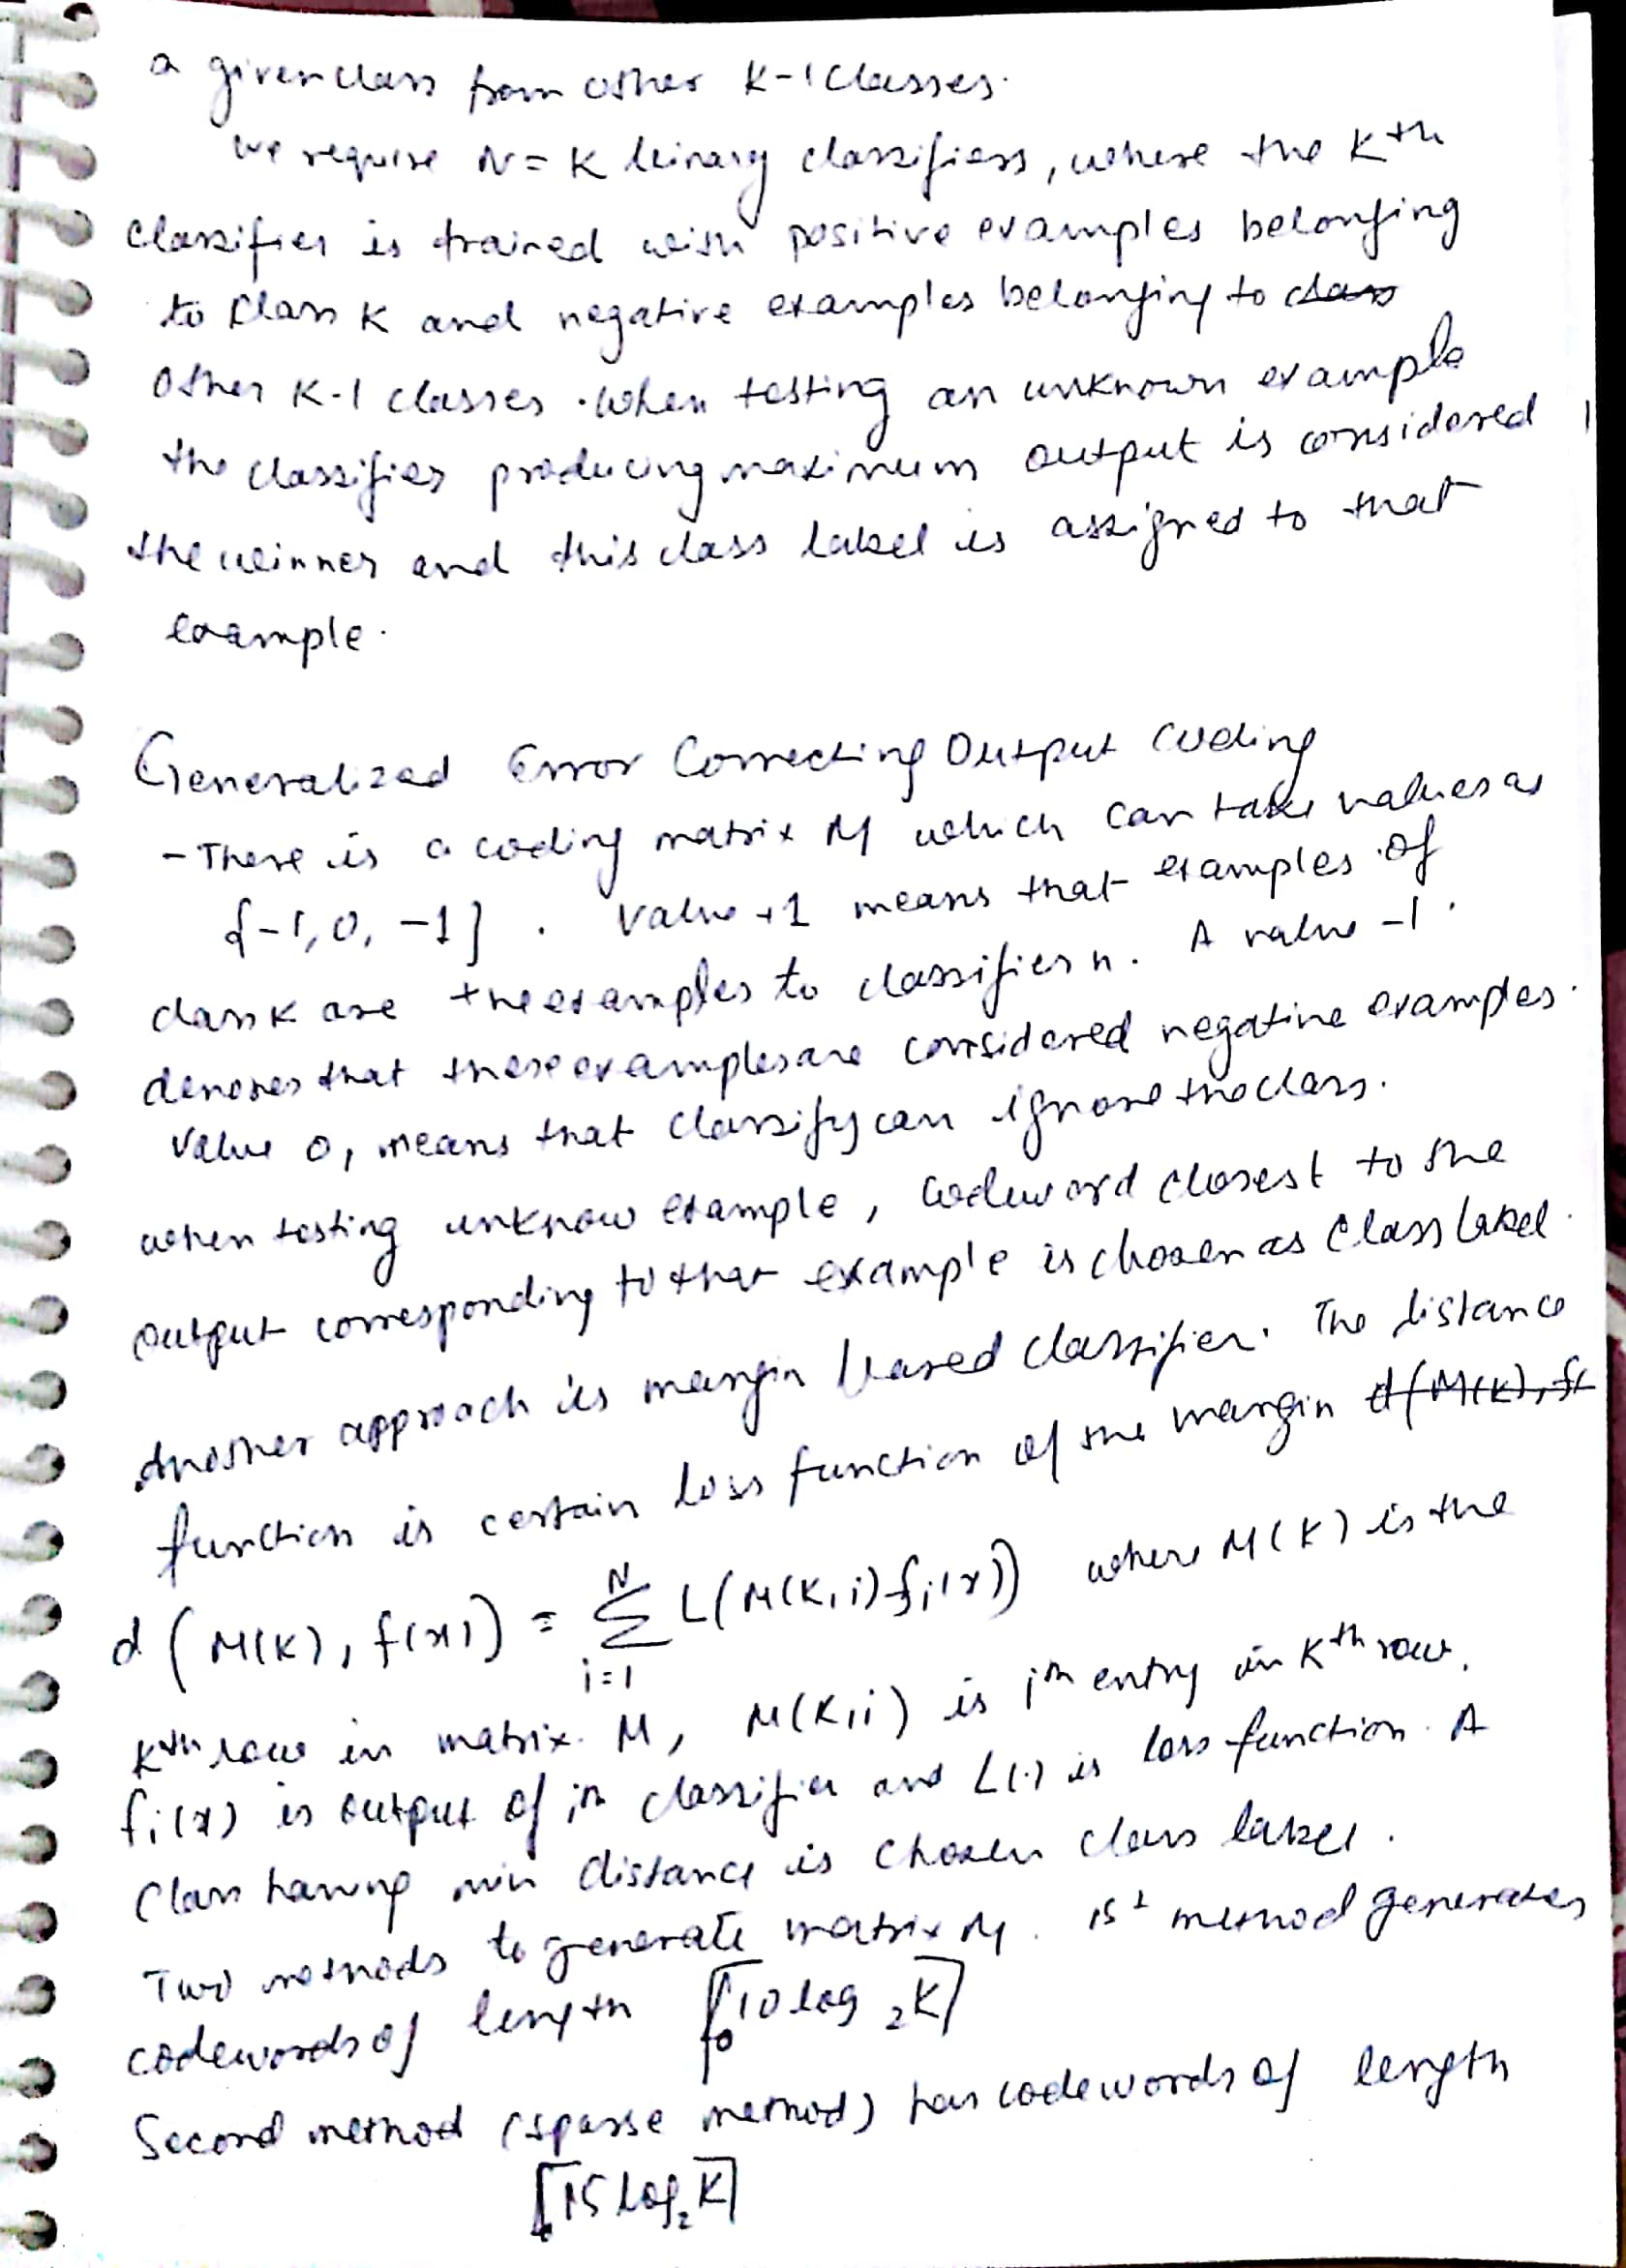 a given class from other K-1 classes.
we require N = K binary classifiers, where the Kth
classifier is trained with positive examples belonging
to class K and negative examples belonging to class
other K-1 classes. When testing an unknown example
the classifier producing maximum output is considered
the winner and this class label is assigned to that
example.
Generalized Error Correcting Output Coding
- There is a coding matrix M which can take values as
{-1, 0, -1} . Value +1 means that examples of
class K are +ve examples to classifier n. A value -1
denotes that these examples are considered negative examples.
Value 0, means that classify can ignore the class.
when testing unknow example, codeword closest to the
output corresponding to that example is chosen as class label.
Another approach is margin based classifier. The distance
function is certain loss function of the margin d(M(K), f(
d(M(K), f(x)) = Σ_{i=1}^{N} L(M(K,i) fi(x)) where M(K) is the
Kth row in matrix M, M(K,i) is ith entry in Kth row.
fi(x) is output of ith classifier and L(.) is loss function. A
Class having min distance is chosen class label.
Two methods to generate matrix M. 1st method generates
codewords of length ⌈10 log2 K⌉
Second method (sparse method) has codewords of length
⌈15 log2 K⌉